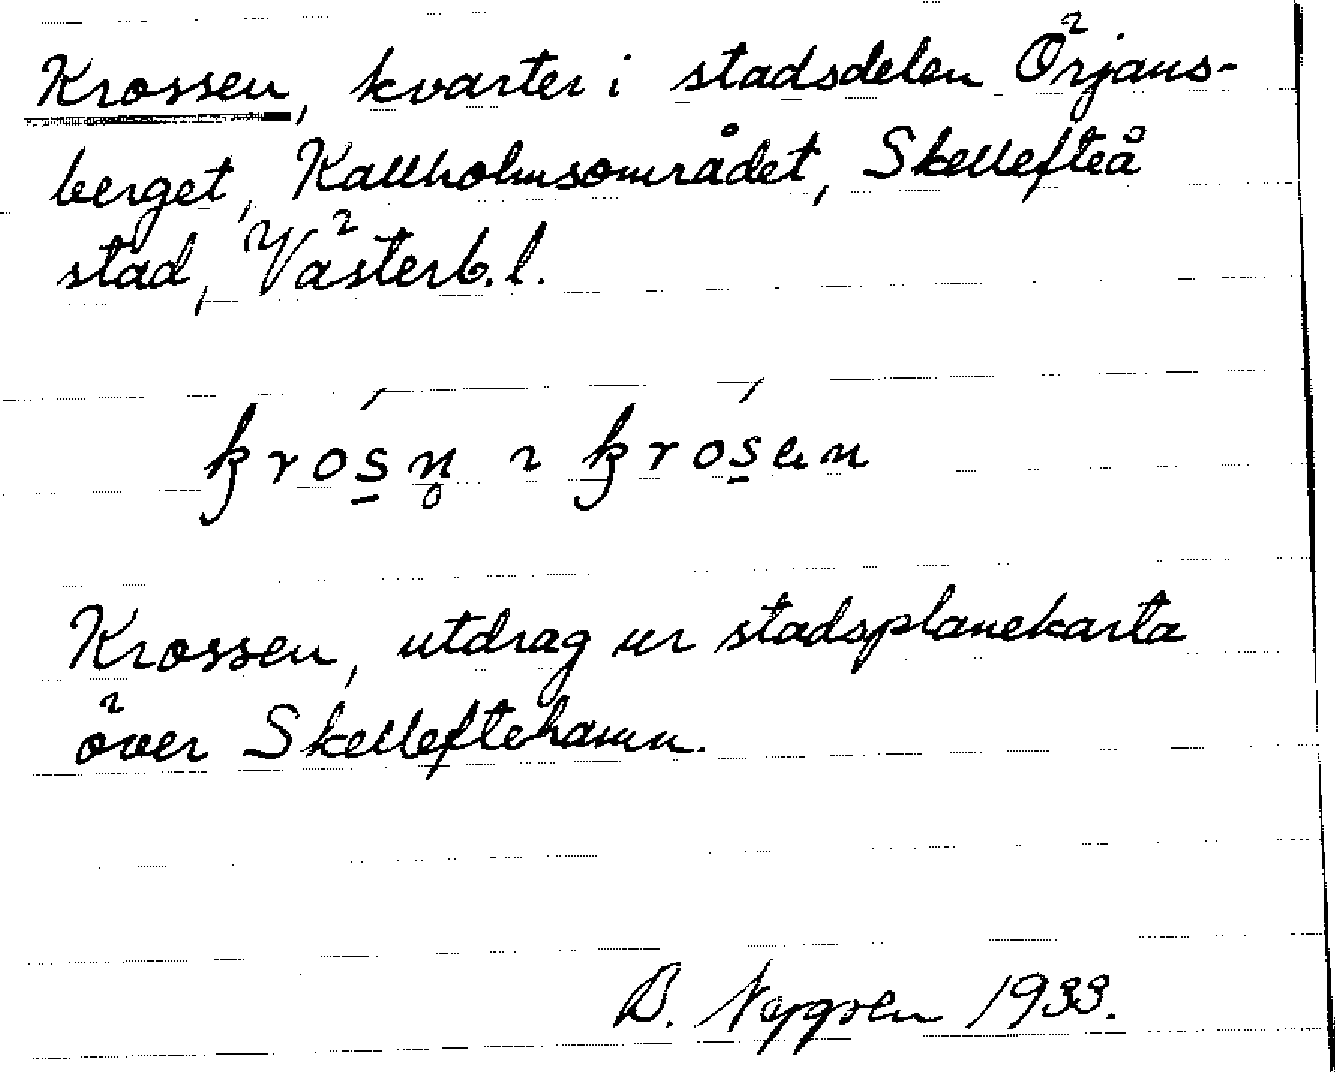 Krossen, kvarter i stadsdelen Örjans-
berget, Kallholmsområdet, Skellefteå
stad, Västerb. l.
krós̲n̥ ~ krós̲en
Krossen, utdrag ur stadsplanekarta
över Skelleftehamn.
B. 1933.